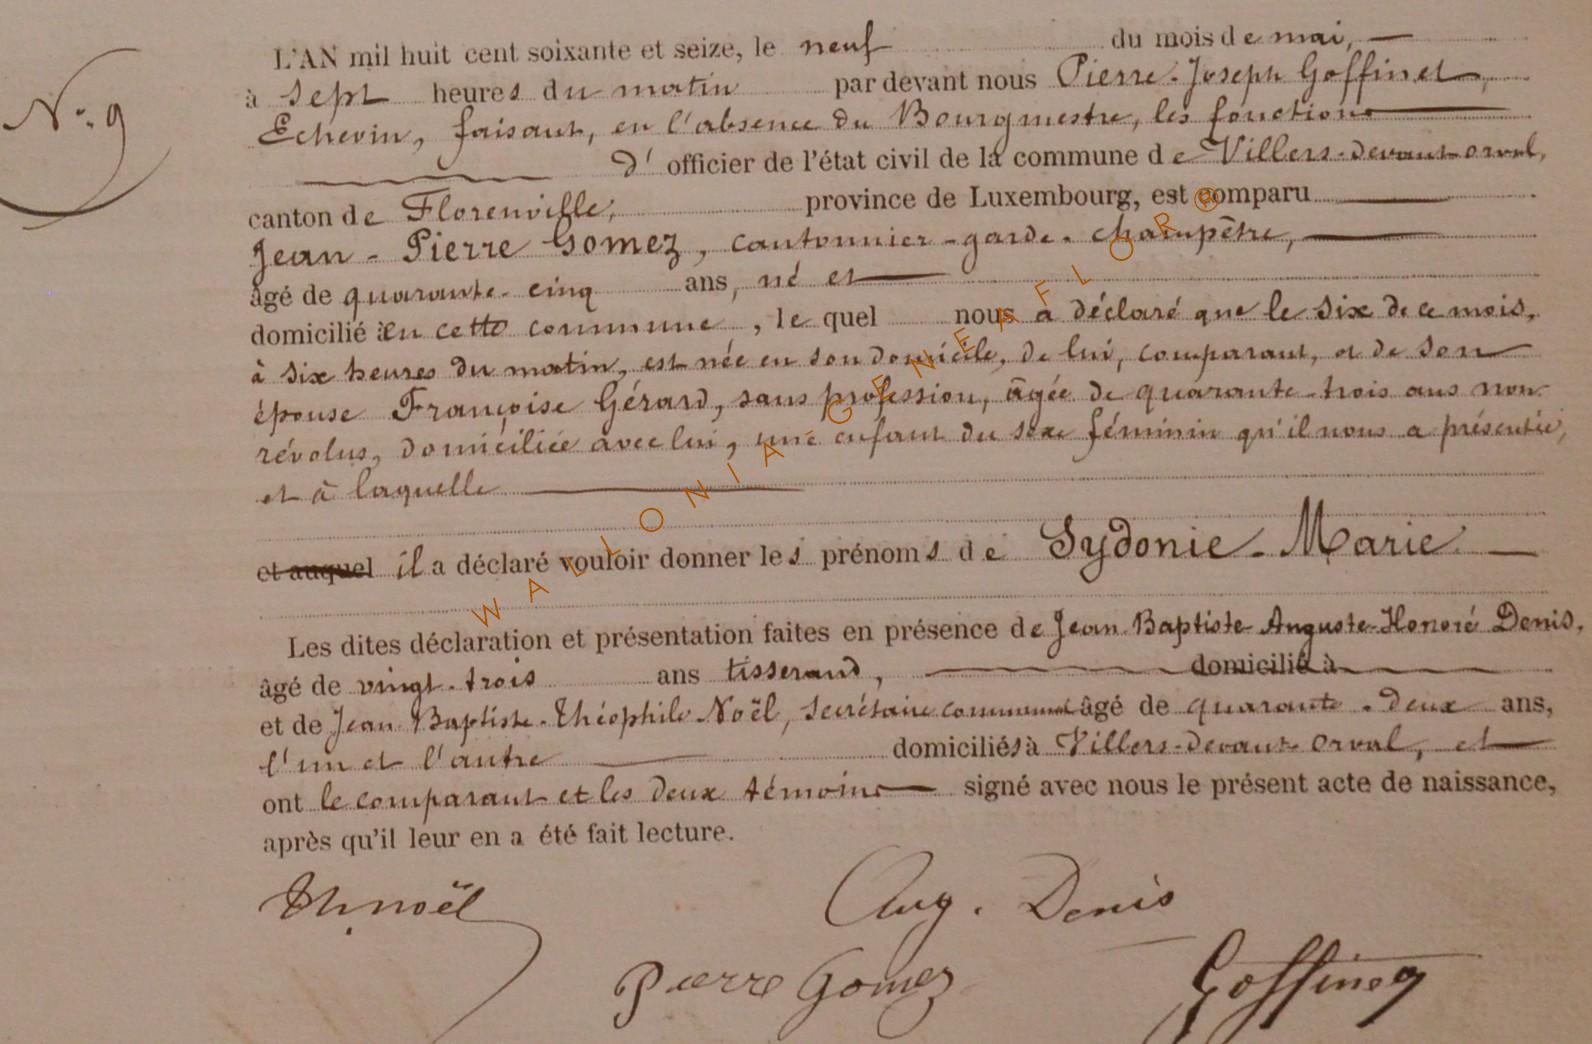 N° 9
L'AN mil huit cent soixante et seize, le neuf du mois de mai,
à sept heures du matin par devant nous Pierre-Joseph Goffinet,
Echevin, faisant, en l'absence du Bourgmestre, les fonctions
d'officier de l'état civil de la commune de Villers-devant-orval,
canton de Florenville, province de Luxembourg, est comparu
Jean-Pierre Gomez, cantonnier-garde-champêtre,
âgé de quarante-cinq ans, né et
domicilié en cette commune, lequel nous a déclaré que le six de ce mois,
à six heures du matin, est née en son domicile, de lui, comparant, et de son
épouse Françoise Gérard, sans profession, âgée de quarante-trois ans non
révolus, domiciliée avec lui, une enfant du sexe féminin qu'il nous a présentée,
et à laquelle
et auquel il a déclaré vouloir donner les prénoms de Sydonie-Marie
Les dites déclaration et présentation faites en présence de Jean-Baptiste-Auguste-Honoré Denis,
âgé de vingt-trois ans tisserand, domicilié à
et de Jean-Baptiste-Théophile Noël, secrétaire communal âgé de quarante-deux ans,
l'un et l'autre domiciliés à Villers-devant-Orval, et
ont le comparant et les deux témoins signé avec nous le présent acte de naissance,
après qu'il leur en a été fait lecture.
Th. noël Aug. Denis
Pierre Gomez Goffinet
WALLONIA-GENEAFLOR®